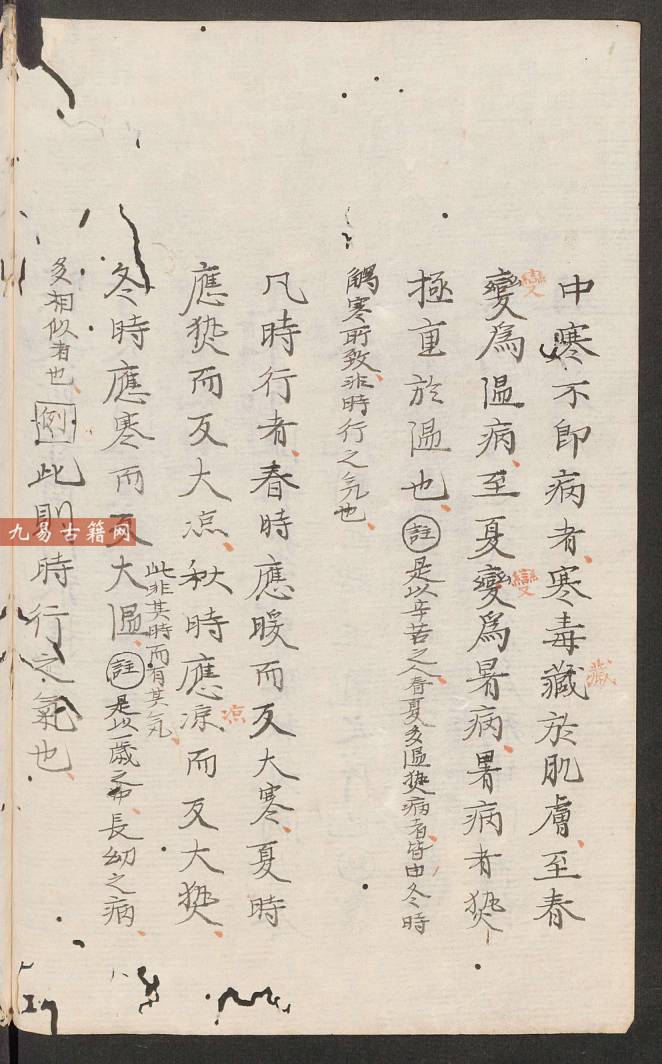 中寒不即病者寒毒藏於肌膚至春
變爲温病至夏變爲暑病暑病者𤍠
極重於温也 註 是以辛苦之人春夏多温𤍠病者皆由冬時
觸寒所致非時行之気也
凡時行者春時應暖而反大寒夏時
應𤍠而反大凉秋時應凉而反大𤍠
此非其時而有其気
冬時應寒而反大温 註 是以一歳之中長幼之病
多相似者也 例 此則時行之氣也
變
變
藏
凉
九易古籍网